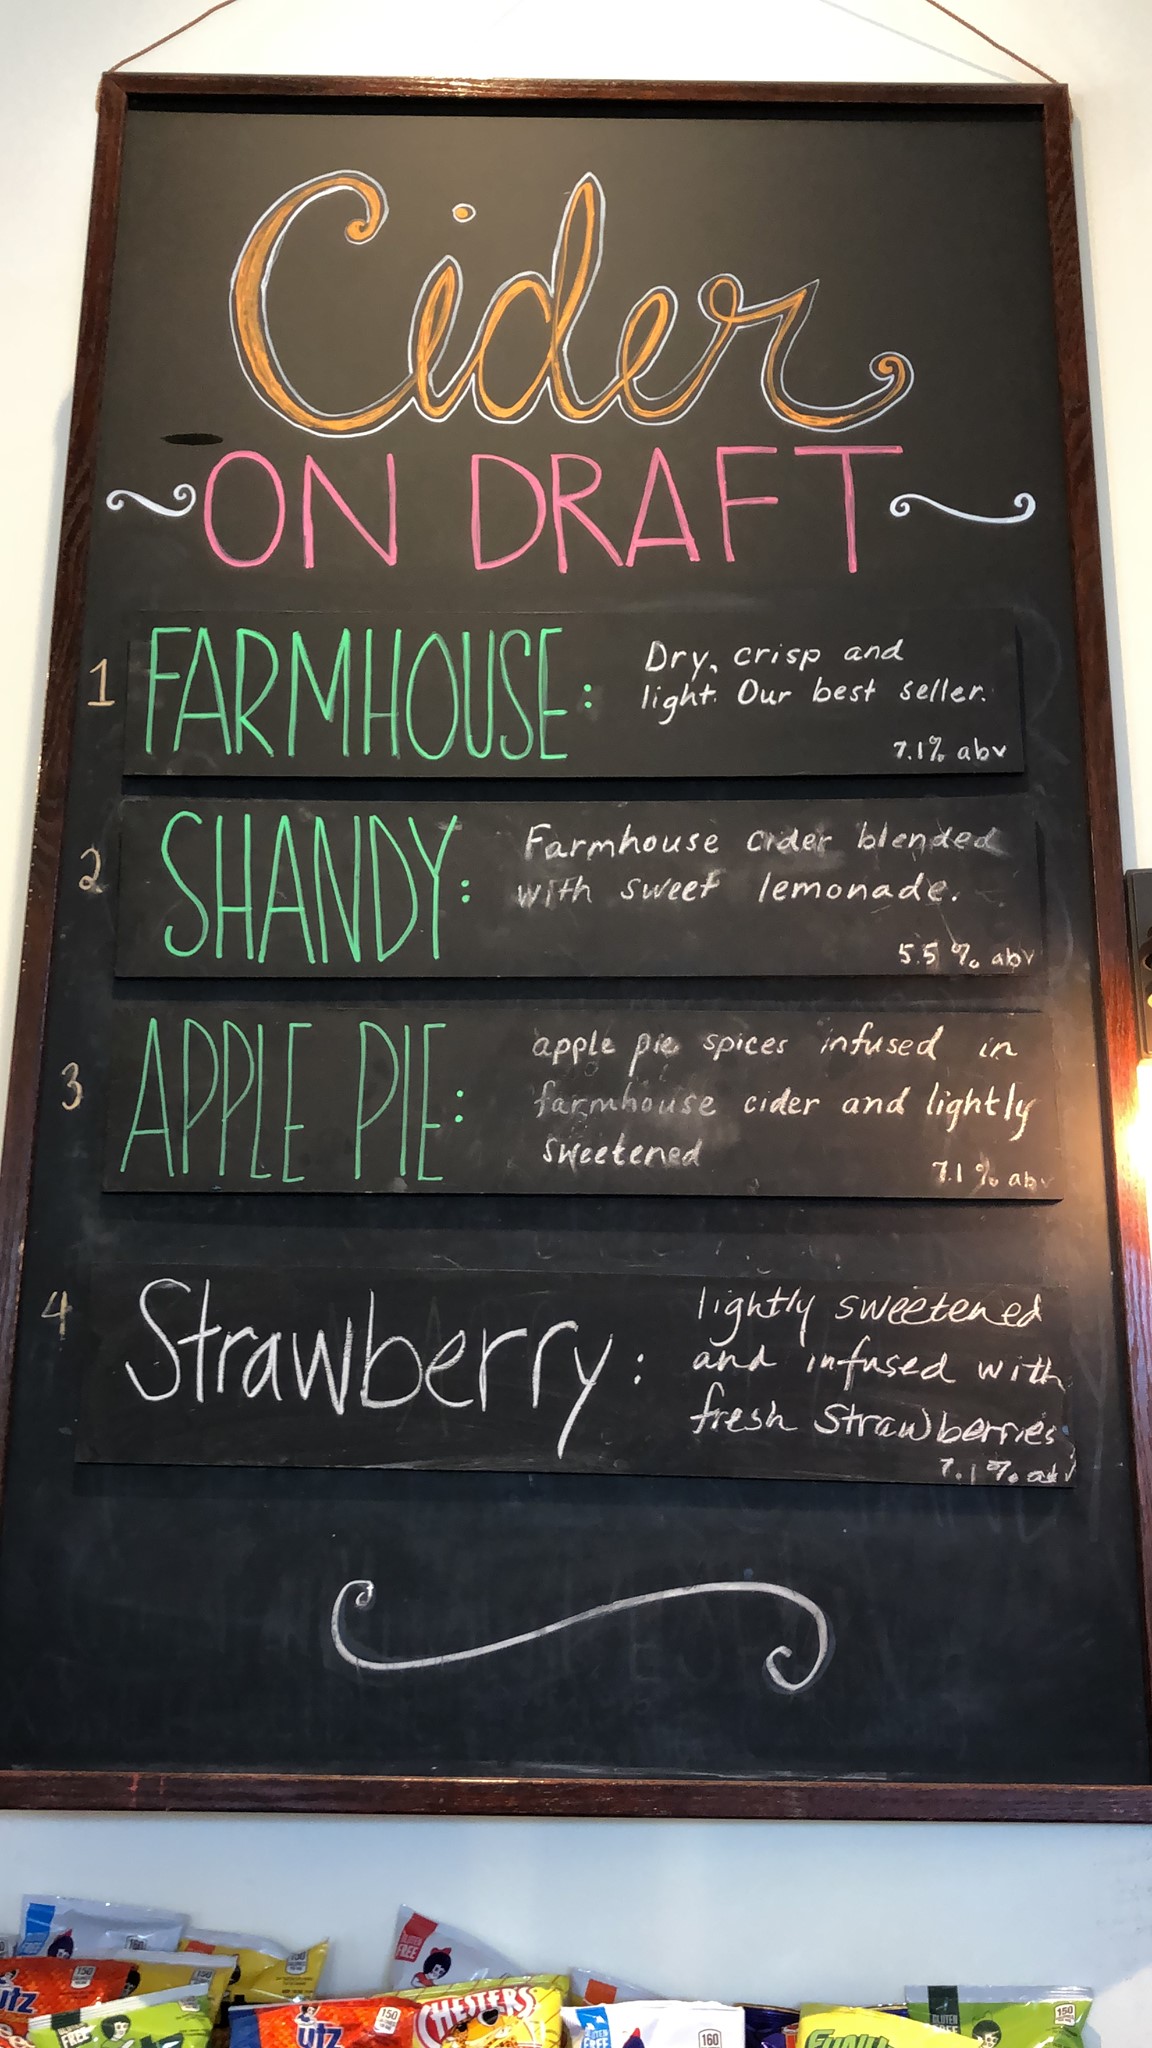 Cider
ON DRAFT
1 FARMHOUSE: Dry, crisp and
light. Our best seller.
7.1% abv
2 SHANDY: Farmhouse cider blended
with sweet lemonade.
5.5% abv
3 APPLE PIE: apple pie spices infused in
farmhouse cider and lightly
sweetened
7.1% abv
4 Strawberry: lightly sweetened
and infused with
fresh strawberries
7.1% abv
GLUTEN FREE
160
150
150
UTZ
FREE
UTZ
150
CHESTERS
FREE
160
GLUTEN FREE
150